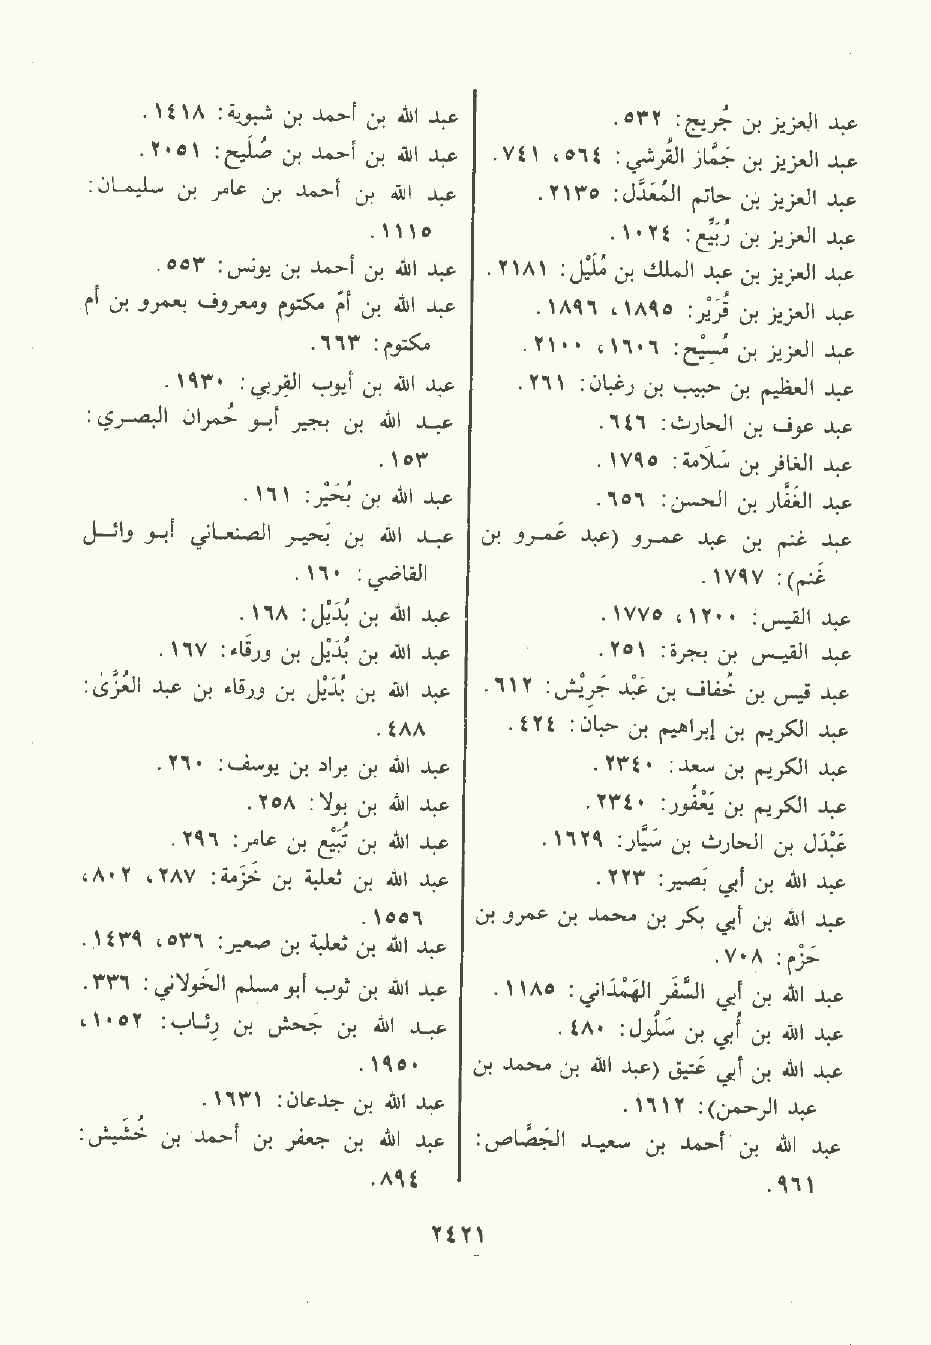 عبد العزيز بن جُريج: ٥٣٢.
عبد العزيز بن جَمَّاز القُرشي: ٥٦٤، ٧٤١.
عبد العزيز بن حاتم المُعَدَّل: ٢١٣٥.
عبد العزيز بن رُبَيِّع: ١٠٢٤.
عبد العزيز بن عبد الملك بن مُلَيْل: ٢١٨١.
عبد العزيز بن قُرَيْر: ١٨٩٥، ١٨٩٦.
عبد العزيز بن مُسَيْح: ١٦٠٦، ٢١٠٠.
عبد العظيم بن حبيب بن رغبان: ٢٦١.
عبد عوف بن الحارث: ٦٤٦.
عبد الغافر بن سَلَامة: ١٧٩٥.
عبد الغَفَّار بن الحسن: ٦٥٦.
عبد غنم بن عبد عمرو (عبد عَمرو بن
غَنم): ١٧٩٧.
عبد القيس: ١٢٠٠، ١٧٧٥.
عبد القيس بن بجرة: ٢٥١.
عبد قيس بن خُفاف بن عَبْد جَرِيْش: ٦١٢.
عبد الكريم بن إبراهيم بن حبان: ٤٢٤.
عبد الكريم بن سعد: ٢٣٤٠.
عبد الكريم بن يَعْفُور: ٢٣٤٠.
عَبْدَل بن الحارث بن سَيَّار: ١٦٢٩.
عبد الله بن أبي بَصير: ٢٢٣.
عبد الله بن أبي بكر بن محمد بن عمرو بن
حَزْم: ٧٠٨.
عبد الله بن أبي السَّفَر الهَمْدَاني: ١١٨٥.
عبد الله بن أُبي بن سَلُول: ٤٨٠.
عبد الله بن أبي عَتيق (عبد الله بن محمد بن
عبد الرحمن): ١٦١٢.
عبد الله بن أحمد بن سعيد الجَصَّاص:
٩٦١.
عبد الله بن أحمد بن شبوية: ١٤١٨.
عبد الله بن أحمد بن صُلَيح: ٢٠٥١.
عبد الله بن أحمد بن عامر بن سليمان:
١١١٥.
عبد الله بن أحمد بن يونس: ٥٥٣.
عبد الله بن أم مكتوم ومعروف بعمرو بن أم
مكتوم: ٦٦٣.
عبد الله بن أيوب القِربي: ١٩٣٠.
عبد الله بن بجير أبو حُمران البصري:
١٥٣.
عبد الله بن بُحَيْر: ١٦١.
عبد الله بن بَحير الصنعاني أبو وائل
القاضي: ١٦٠.
عبد الله بن بُدَيْل: ١٦٨.
عبد الله بن بُدَيْل بن ورقاء: ١٦٧.
عبد الله بن بُدَيْل بن ورقاء بن عبد العُزَّىٰ:
٤٨٨.
عبد الله بن براد بن يوسف: ٢٦٠.
عبد الله بن بولا: ٢٥٨.
عبد الله بن تُبَيْع بن عامر: ٢٩٦.
عبد الله بن ثعلبة بن خَزَمة: ٢٨٧، ٨٠٢،
١٥٥٦.
عبد الله بن ثعلبة بن صعير: ٥٣٦، ١٤٣٩.
عبد الله بن ثوب أبو مسلم الخَولاني: ٣٣٦.
عبد الله بن جَحش بن رِئاب: ١٠٥٢،
١٩٥٠.
عبد الله بن جدعان: ١٦٣١.
عبد الله بن جعفر بن أحمد بن خُشَيش:
٨٩٤.
٢٤٢١